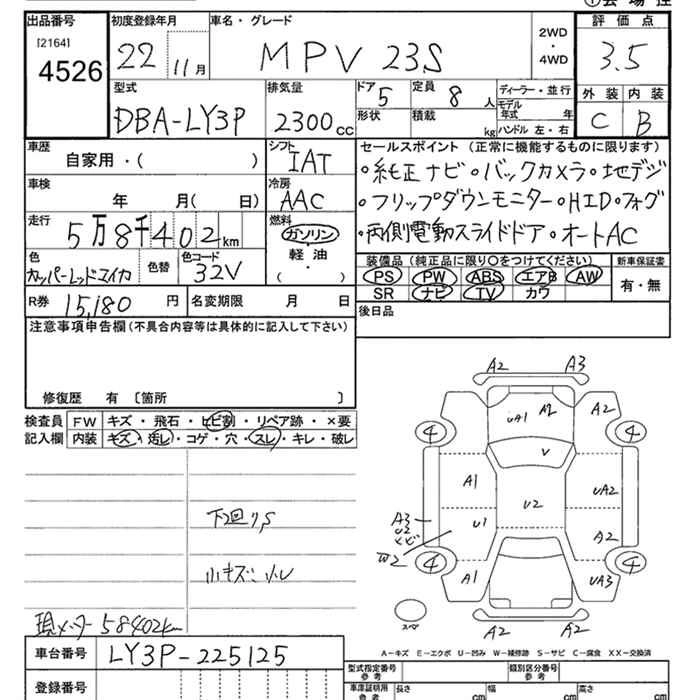 ①会場控
出品番号
[2164]
4526
初度登録年月
22
11月
車名・グレード
MPV 23S
2WD
・
4WD
評価点
3.5
外装 内装
C B
型式
DBA-LY3P
排気量
2300cc
ドア
5
定員
8人
形状
積載
kg
ディーラー・並行
モデル年式 年
ハンドル 左・右
車歴
自家用・( )
シフト
IAT
セールスポイント (正常に機能するものに限ります)
・純正ナビ・バックカメラ・地デジ
・フリップダウンモニター・HID・フォグ
・両側電動スライドドア・オートAC
車検
年 月( 日)
冷房
AAC
走行
5万8千402km
燃料
ガソリン
軽油
・
( )
色
カッパーレッドマイカ
色替
色コード
32V
装備品 (純正品に限り○をつけてください)
新車保証書
PS PW ABS エアB AW
有・無
SR ナビ TV カワ
R券
15,180円
名変期限 月 日
後日品
注意事項申告欄(不具合内容等は具体的に記入して下さい)
修復歴 有 〔箇所 〕
検査員
記入欄
FW キズ・飛石・ヒビ割・リペア跡・×要
内装 キズ・汚レ・コゲ・穴・スレ・キレ・破レ
下回りS
小キズ小U
現メーター58402km
A2 A3
UA1 A2 A2
4 4
V
A1 U2 UA2
A3
U2
メビ
U1 A2
W2
4 4
A1 UA3
スペア
A2 A2
A-キズ E-エクボ U-凹み W-補修跡 S-サビ C-腐食 XX-交換済
車台番号
LY3P-225125
登録番号
型式指定番号
参考
類別区分番号
参考
車庫証明用
参考
長さ cm
幅 cm
高さ cm